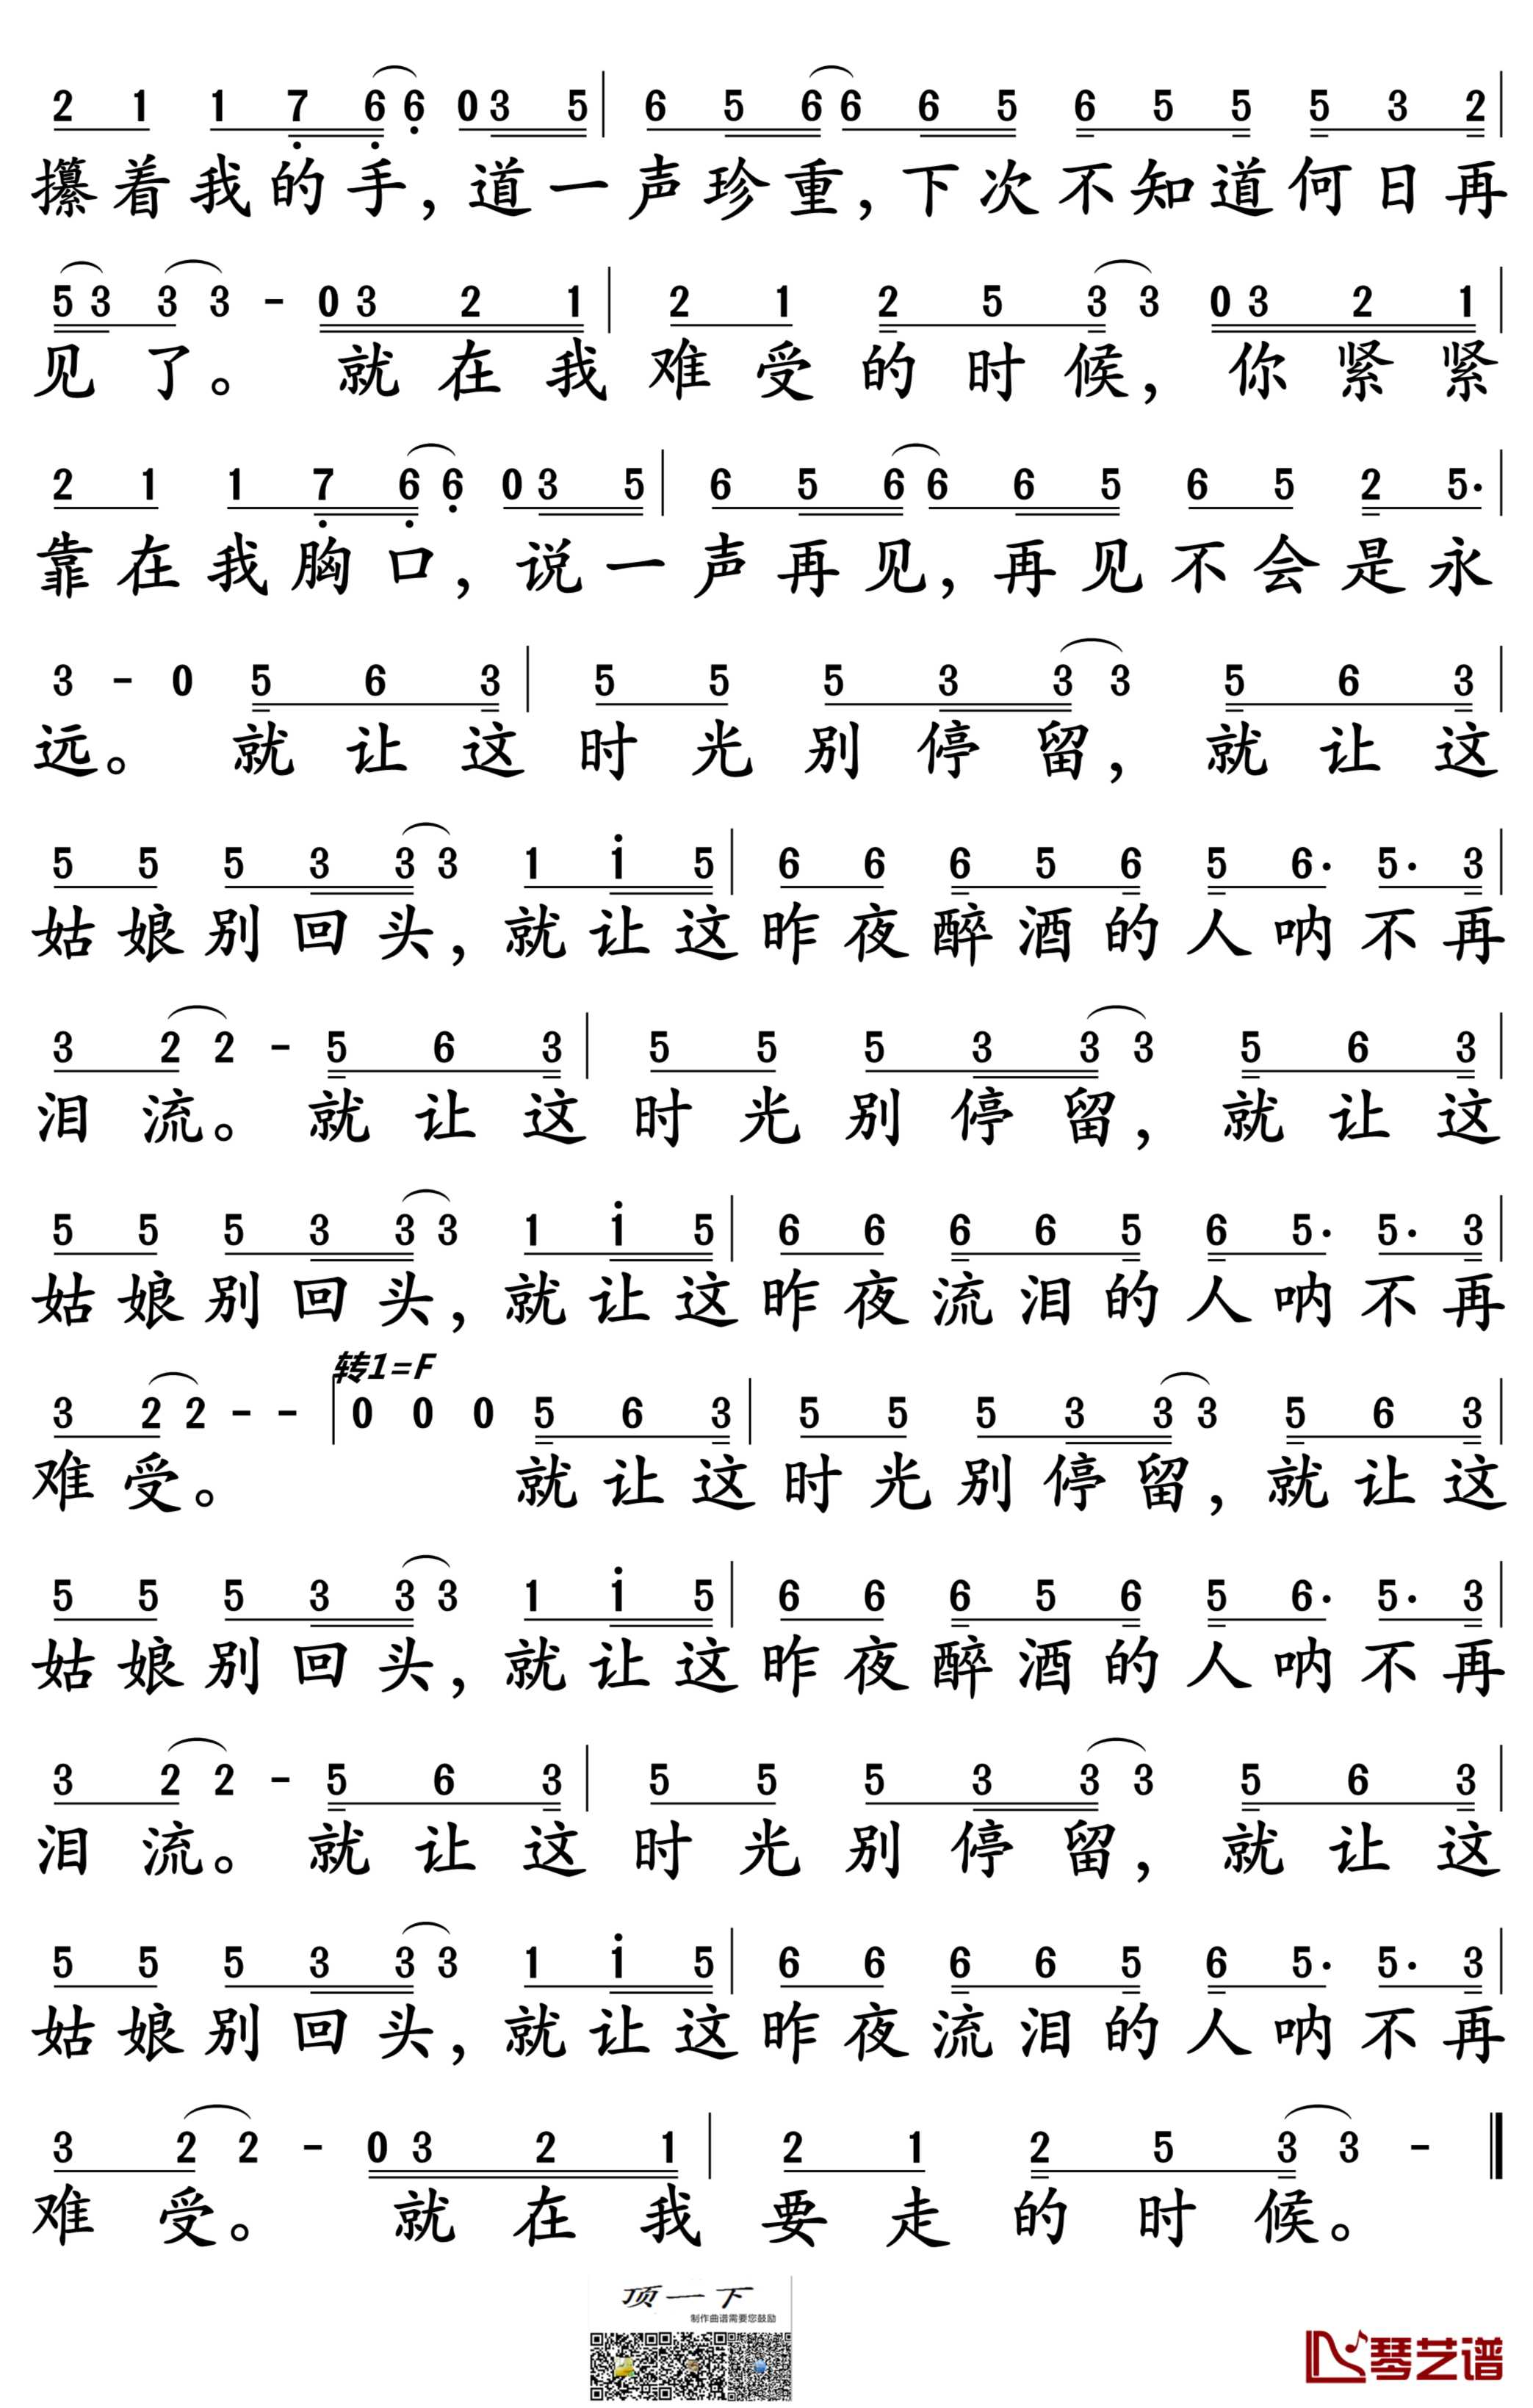 2 1 1 7 6 6 0 3 5 | 6 5 6 6 6 5 6 5 5 5 3 2 |
攥着我的手，道一声珍重，下次不知道何日再
5 3 3 3 - 0 3 2 1 | 2 1 2 5 3 3 0 3 2 1 |
见了。就在我难受的时候，你紧紧
2 1 1 7 6 6 0 3 5 | 6 5 6 6 6 5 6 5 2 5· |
靠在我胸口，说一声再见，再见不会是永
3 - 0 5 6 3 | 5 5 5 3 3 3 5 6 3 |
远。就让这时光别停留，就让这
5 5 5 3 3 3 1 i 5 | 6 6 6 5 6 5 6· 5· 3 |
姑娘别回头，就让这昨夜醉酒的人呐不再
3 2 2 - 5 6 3 | 5 5 5 3 3 3 5 6 3 |
泪流。就让这时光别停留，就让这
5 5 5 3 3 3 1 i 5 | 6 6 6 6 5 6 5· 5· 3 |
姑娘别回头，就让这昨夜流泪的人呐不再
转1=F
3 2 2 - - | 0 0 0 5 6 3 | 5 5 5 3 3 3 5 6 3 |
难受。就让这时光别停留，就让这
5 5 5 3 3 3 1 i 5 | 6 6 6 5 6 5 6· 5· 3 |
姑娘别回头，就让这昨夜醉酒的人呐不再
3 2 2 - 5 6 3 | 5 5 5 3 3 3 5 6 3 |
泪流。就让这时光别停留，就让这
5 5 5 3 3 3 1 i 5 | 6 6 6 6 5 6 5· 5· 3 |
姑娘别回头，就让这昨夜流泪的人呐不再
3 2 2 - 0 3 2 1 | 2 1 2 5 3 3 - ‖
难受。就在我要走的时候。
顶一下
制作曲谱需要您鼓励
琴艺谱